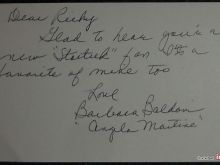 Dear Ricky
Glad to hear you're a
new "Startrek" fan. It's a
favorite of mine too
Love
Barbara Baldon
"Angla Martine"